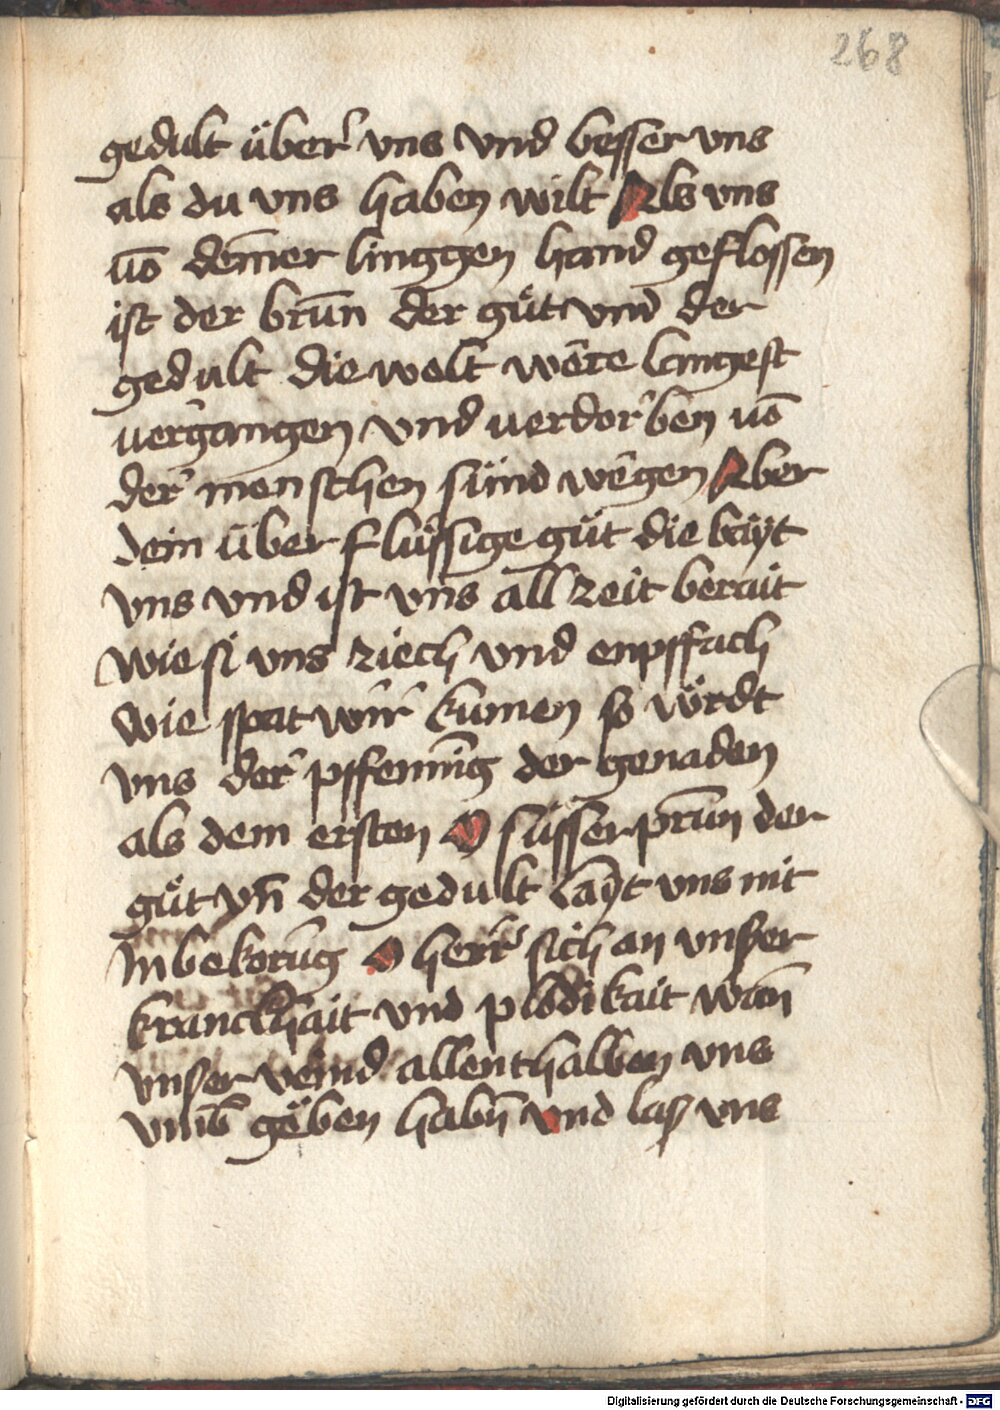 268
gedult über vns vnd besser vns
als du vns haben wilt Als vns
vō deiner linggen hand geflossen
ist der brūn der güt vnd der
gedult die welt wēre langest
vergangen vnd verdorben vō
der menschen sünd wēgen Aber
dein überflüssige güt die bäyt
vns vnd ist vns all zeit berait
wie si vns ziech vnd enpffach
wie spat wir kumen so wördt
vns der pffenning der genaden
als dem ersten O süsser prūn der
güt vn̄ der gedult layt vns nit
In bekorūg O herr sich an vnser
kranckhait vnd plödikait wan̄
vnser veind allenthalben vns
vmb geben habn̄ vnd las vns
Digitalisierung gefördert durch die Deutsche Forschungsgemeinschaft - DFG